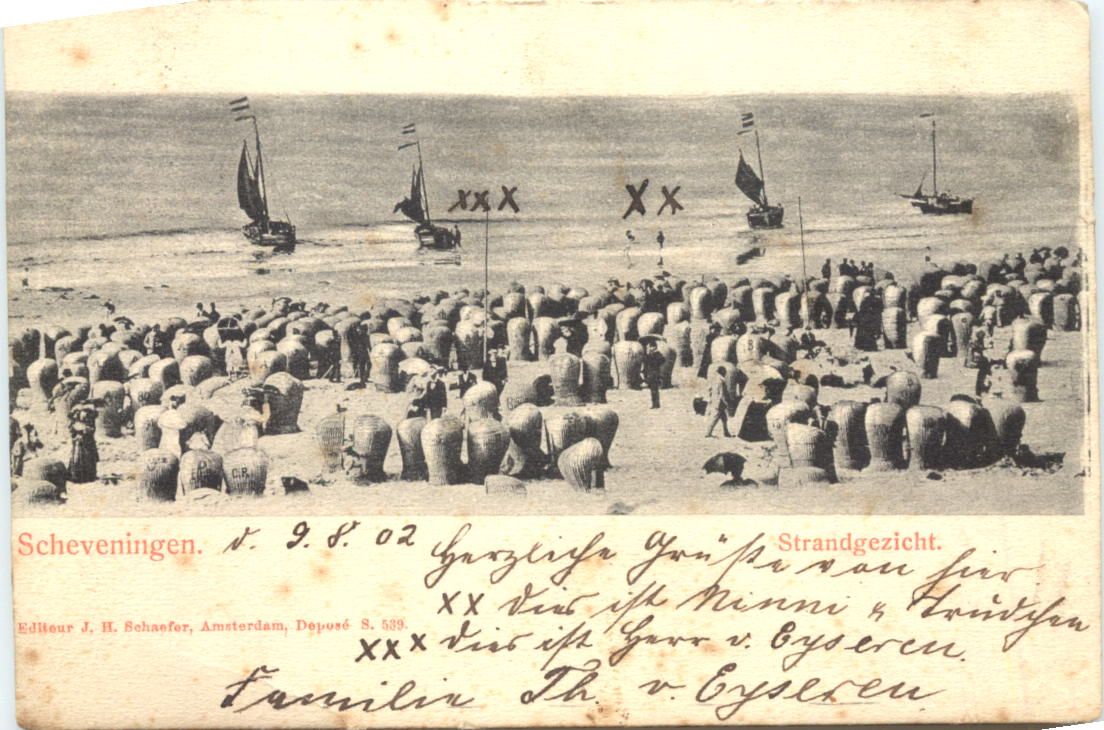 xxx
X X
B
P
C.R.
Scheveningen. d. 9. 8. 02 Herzliche Grüße von hier
Strandgezicht.
xx dies ist Minni u Trudchen
Editeur J. H. Schaefer, Amsterdam, Deposé S. 539.
xxx dies ist Herr v. Eyseren.
Familie Th. v. Eyseren